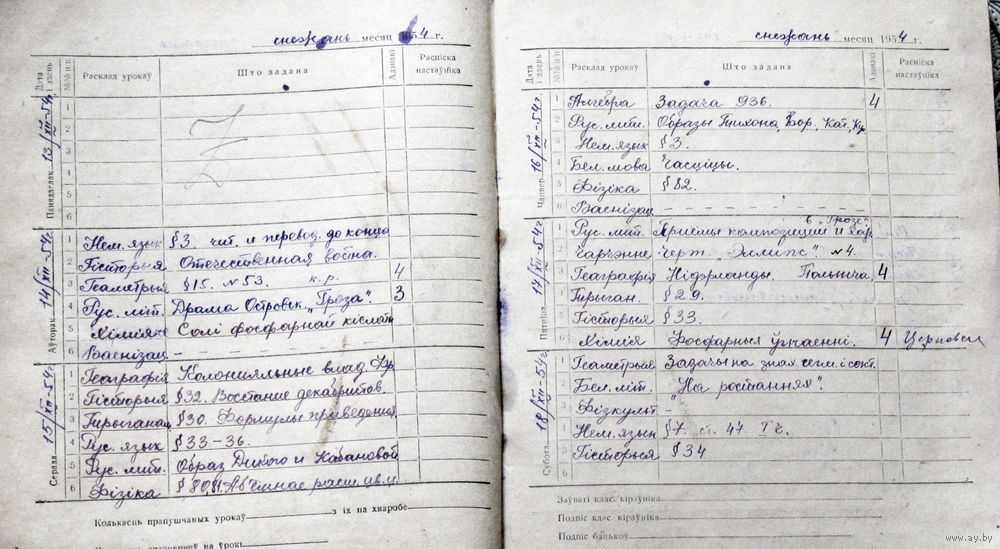 снежань месяц 1954 г.
Дата і дзень №№ п.п. Расклад урокаў Што задана Адзнакі Распіска настаўніка
Панядзелак 13/XII-54г.
1
2
3
4
5
6
Аўторак 14/XII-54г.
1 Нем. язык § 3. чит. и перевод. до конца
2 Гісторыя Отечественная война.
3 Геаметрыя § 15. N 53. к.р. 4
4 Рус. літ. Драма Островск. „Гроза". 3
5 Хімія Солі фосфарнай кіслаты
6 Ваенізац – – – – – –
Серада 15/XII-54г.
1 Геаграфія Колониальные влад. Фр.
2 Гісторыя § 32. Восстание декабристов.
3 Трыганам. § 30. Формулы приведения.
4 Рус. язык § 33-36.
5 Рус. лит. Образ Дикого и Кабановой
6 Фізіка § 80, 81. Аб'ёмнае расш. цв. ц.
Колькасць прапушчаных урокаў з іх па хваробе
снежань месяц 1954 г.
Дата і дзень №№ п.п. Расклад урокаў Што задана Адзнакі Распіска настаўніка
Чацвер 16/XII-54г.
1 Алгебра Задача 936. 4
2 Рус. лит. Образы Тихона, Вар., Кат., Ку
3 Нем. язык § 3.
4 Бел. мова Часціцы.
5 Фізіка § 82.
6 Ваенізац – – – – – –
Пятніца 17/XII-54г
в „Грозе"
1 Рус. лит. Приёмы композиции и хар.
2 Чарчэнне черт. „Эллипс" N 4.
3 Геаграфія Нідэрланды. Польшча. 4
4 Трыган. § 29.
5 Гісторыя § 33.
6 Хімія Фосфарныя ўгнаенні. 4
Субота 18/XII-54г
1 Геаметрыя Задачы на
2 Бел. літ. „На ростанях".
3 Фізкульт –
4 Нем. язык § 7. ст. 47 I ч.
5 Гісторыя § 34
6
Заўвагі клас. кіраўніка
Подпіс клас. кіраўніка
Подпіс бацькоў
www.ay.by